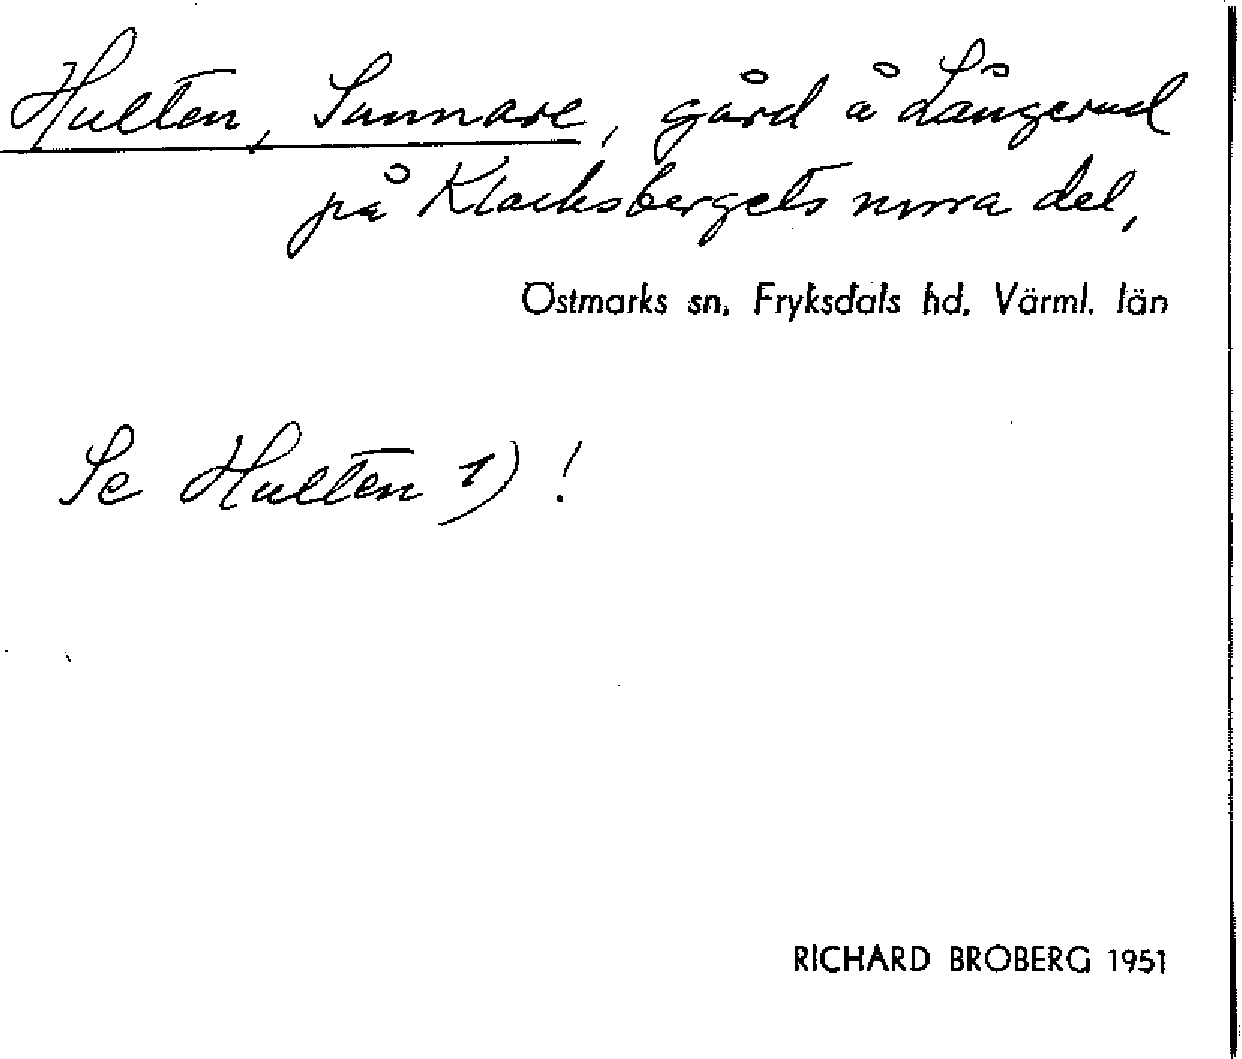 Hulten, Sunnare, gård å Långerud
på Klacksbergets norra del,
Östmarks sn. Fryksdals hd. Värml. län
Se Hulten 1) !
RICHARD BROBERG 1951